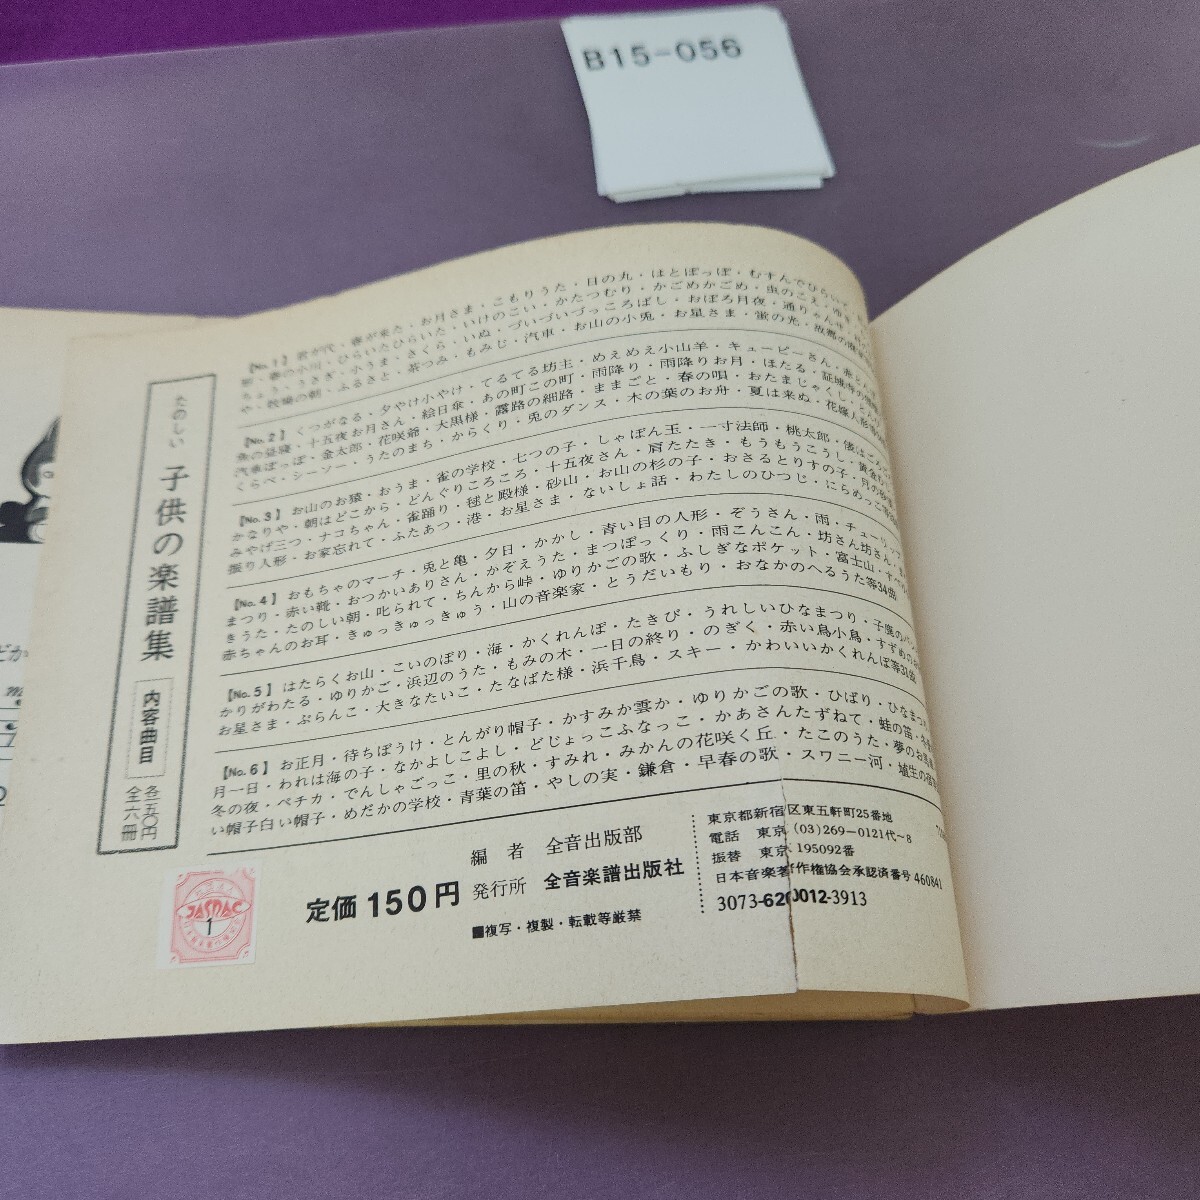 B15-056
たのしい 子供の楽譜集 内容曲目 各一五〇円 全六冊
【No.1】 君が代・春が来た・お月さま・こもりうた・日の丸・はとぽっぽ・むすんでひらいて
蝶・春の小川・ひらいたひらいた・いけのこい・かたつむり・かごめかごめ・虫のこえ・ゆき
ちょう・うさぎ・小うま・さくら・いぬ・づいづいづっころばし・おぼろ月夜・通りゃんせ
や・牧場の朝・ふるさと・茶つみ・もみじ・汽車・お山の小兎・お星さま・蛍の光・故郷の
【No.2】 くつがなる・夕やけ小やけ・てるてる坊主・めえめえ小山羊・キューピーさん・赤とんぼ
魚の昼寝・十五夜お月さん・絵日傘・あの町この町・雨降り・雨降りお月・ほたる・証城寺の
汽車ぽっぽ・金太郎・花咲爺・大黒様・露路の細路・ままごと・春の唄・おたまじゃくし・とんび
くらべ・シーソー・うたのまち・からくり・兎のダンス・木の葉のお舟・夏は来ぬ・花嫁人形等
【No.3】 お山のお猿・おうま・雀の学校・七つの子・しゃぼん玉・一寸法師・桃太郎・俵はごろごろ
かなりや・朝はどこから・どんぐりころころ・十五夜さん・肩たたき・もうもうこうし・黄金むし
みやげ三つ・ナコちゃん・雀踊り・毬と殿様・砂山・お山の杉の子・おさるとりすの子・月の砂漠
振り人形・お家忘れて・ふたあつ・港・お星さま・ないしょ話・わたしのひつじ・にらめっこ等
【No.4】 おもちゃのマーチ・兎と亀・夕日・かかし・青い目の人形・ぞうさん・雨・チューリップ
まつり・赤い靴・おつかいありさん・かぞえうた・まつぼっくり・雨こんこん・坊さん坊さん
きうた・たのしい朝・叱られて・ちんから峠・ゆりかごの歌・ふしぎなポケット・富士山・すべり
赤ちゃんのお耳・きゅっきゅっきゅう・山の音楽家・とうだいもり・おなかのへるうた等34曲
【No.5】 はたらくお山・こいのぼり・海・かくれんぼ・たきび・うれしいひなまつり・子鹿のバンビ
かりがわたる・ゆりかご・浜辺のうた・もみの木・一日の終り・のぎく・赤い鳥小鳥・すずめの
お星さま・ぶらんこ・大きなたいこ・たなばた様・浜千鳥・スキー・かわいいかくれんぼ等31曲
【No.6】 お正月・待ちぼうけ・とんがり帽子・かすみか雲か・ゆりかごの歌・ひばり・ひなまつり
月一日・われは海の子・なかよしこよし・どじょっこふなっこ・かあさんたずねて・蛙の笛・冬
冬の夜・ペチカ・でんしゃごっこ・里の秋・すみれ・みかんの花咲く丘・たこのうた・夢のお馬車
い帽子白い帽子・めだかの学校・青葉の笛・やしの実・鎌倉・早春の歌・スワニー河・埴生の宿
定価150円
編者 全音出版部
発行所 全音楽譜出版社
■複写・複製・転載等厳禁
東京都新宿区東五軒町25番地
電話 東京(03)269-0121代~8
振替 東京 195092番
日本音楽著作権協会承認済番号460841
3073-620012-3913
JASRAC
1